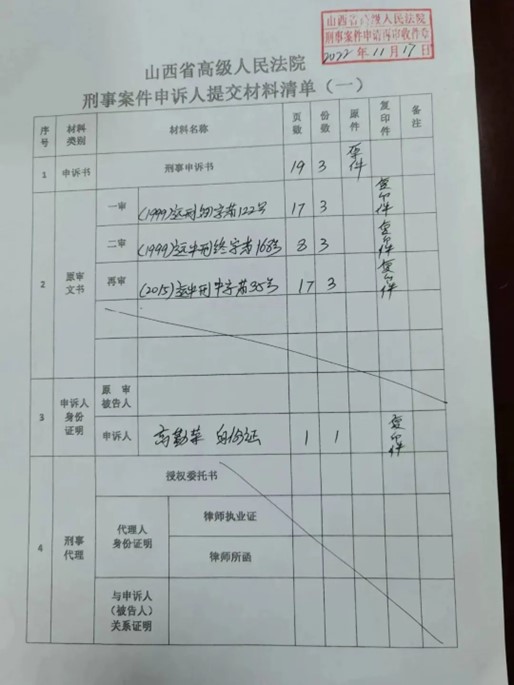 山西省高级人民法院
刑事案件申请再审收件专
2022年11月17日
山西省高级人民法院
刑事案件申诉人提交材料清单（一）
序号 材料类别 材料名称 页数 份数 原件 复印件 备注
1 申诉书 刑事申诉书 19 3 原件
2 原审文书
一审 (1999)运刑初字第122号 17 3 复印件
二审 (1999)运中刑终字第168号 8 3 复印件
再审 (2015)运中刑申字第35号 17 3 复印件
3 申诉人身份证明
原审被告人
申诉人 高勤荣 身份证 1 1 复印件
4 刑事代理
授权委托书
代理人身份证明
律师执业证
律师所函
与申诉人（被告人）关系证明